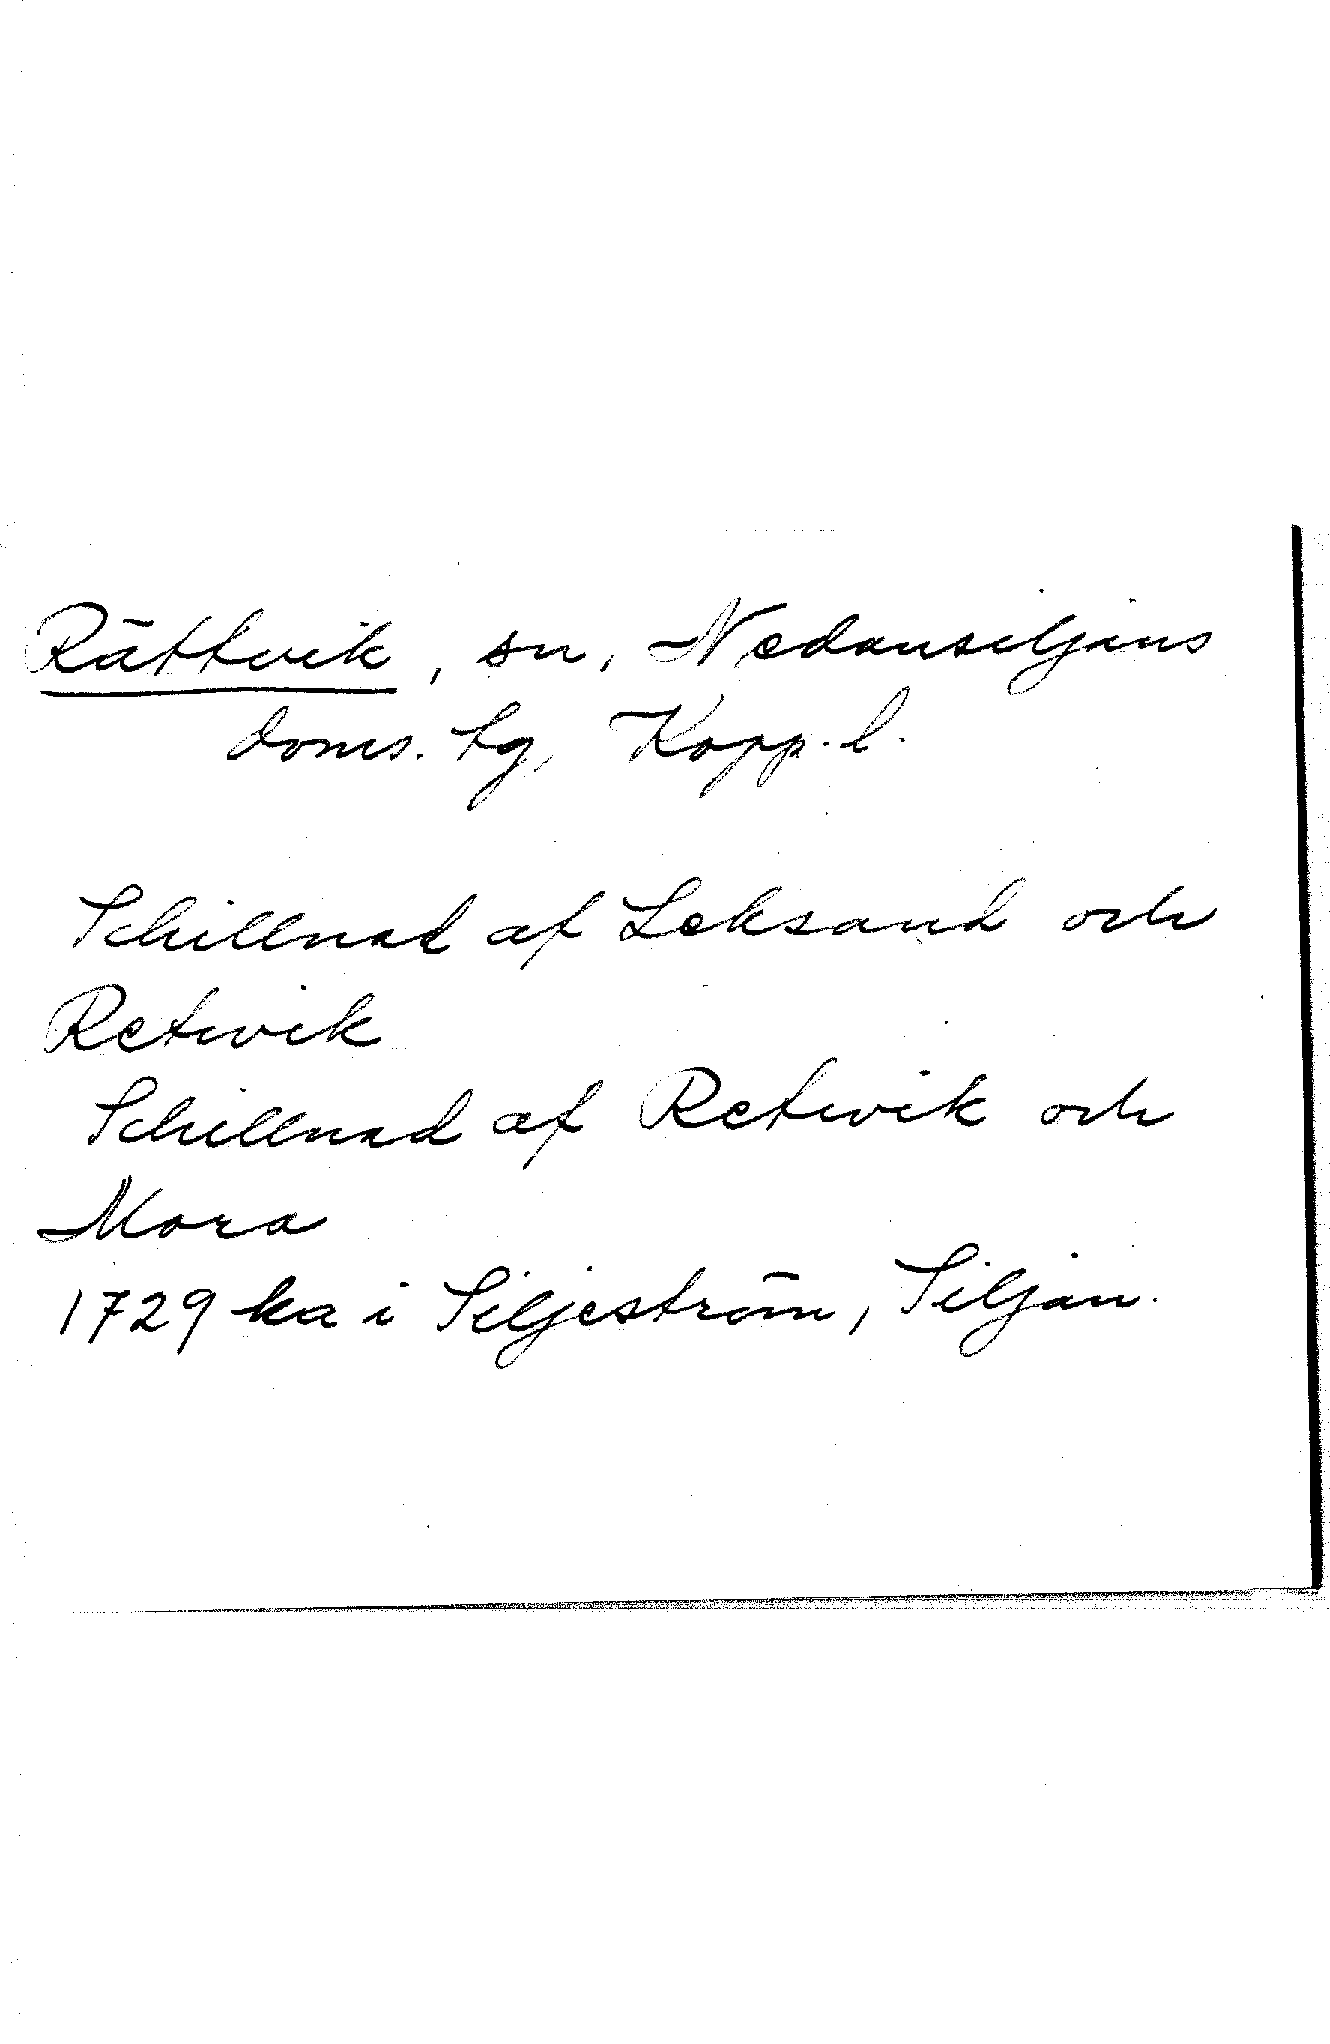 Rättvik, sn, Nedansiljans
doms. tg, Kopp. l.
Schillnad af Leksand och
Retwik
Schillnad af Retwik och
Mora
1729 ka i Siljeström, Siljan.